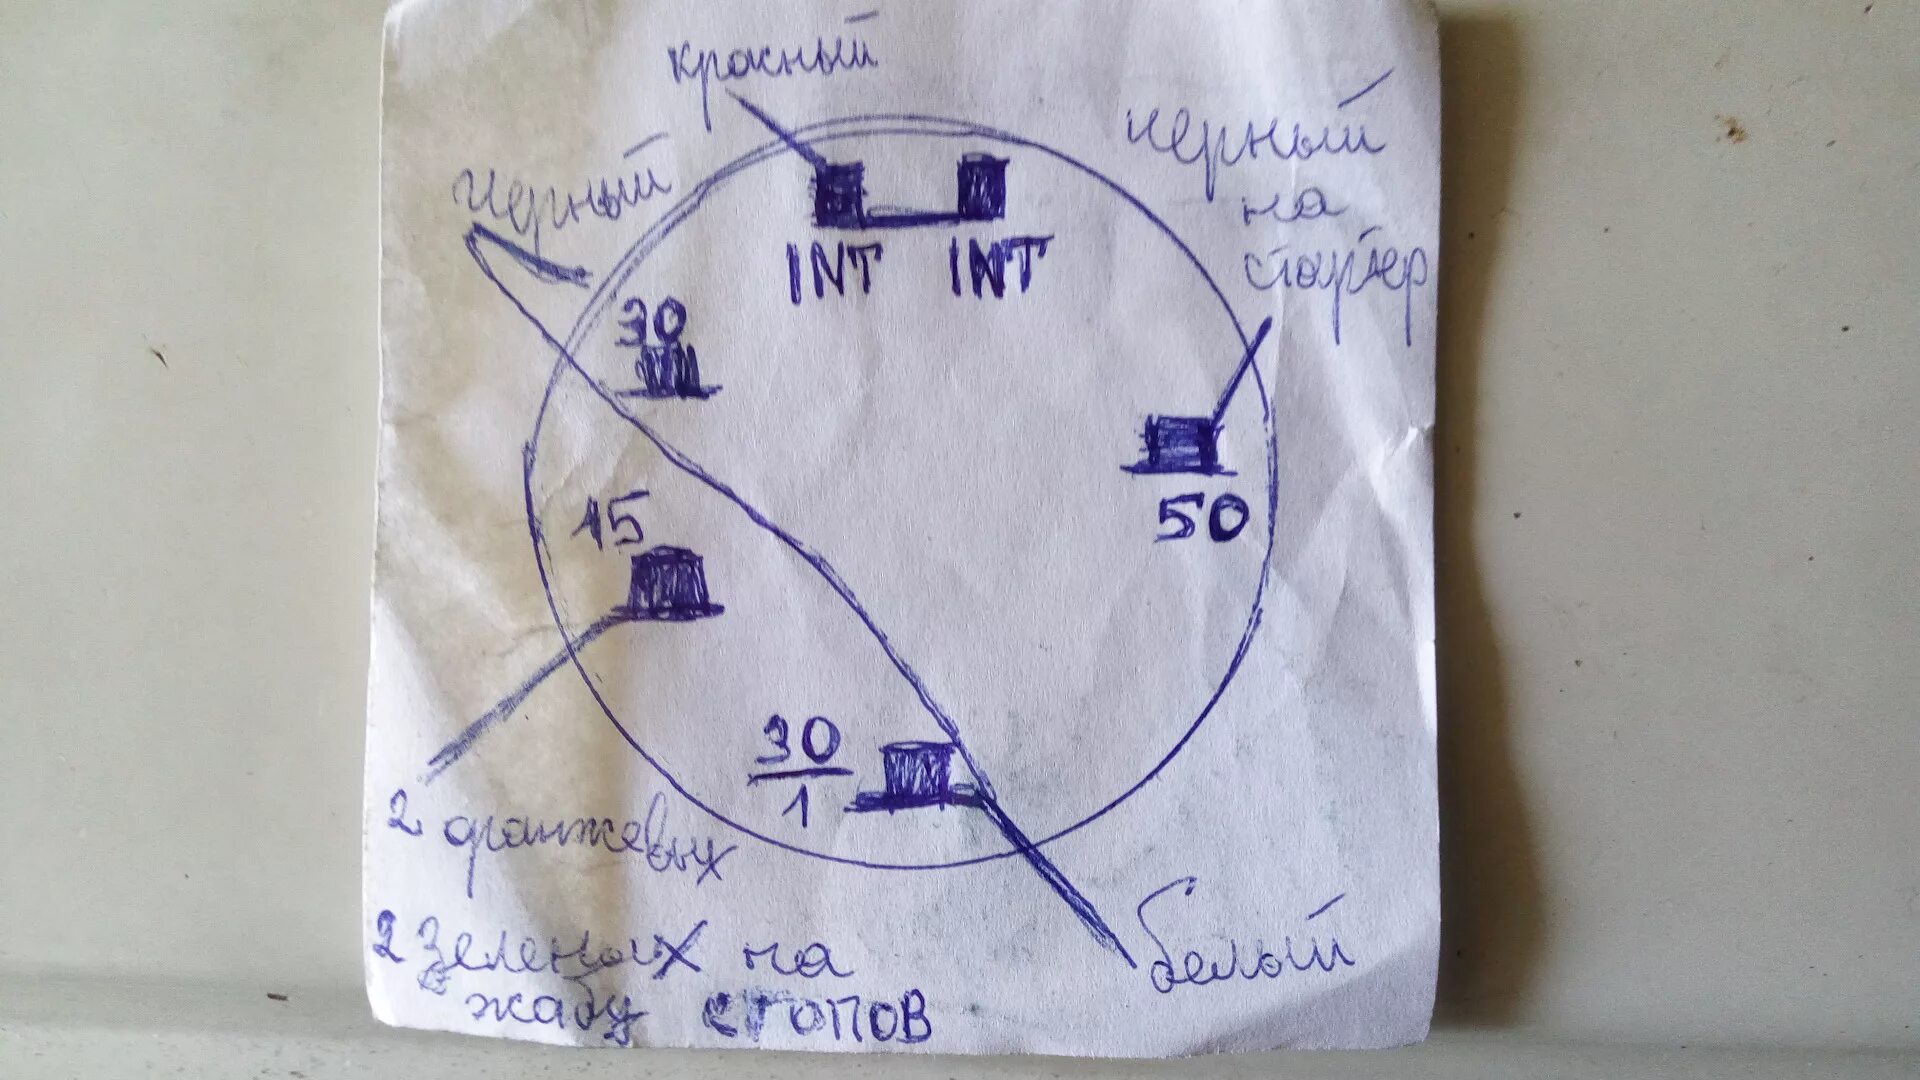 красный
черный
черный
на
стартер
INT INT
30
15
50
30
1
2 оранжевых
2 зеленых на
жабу стопов
белый